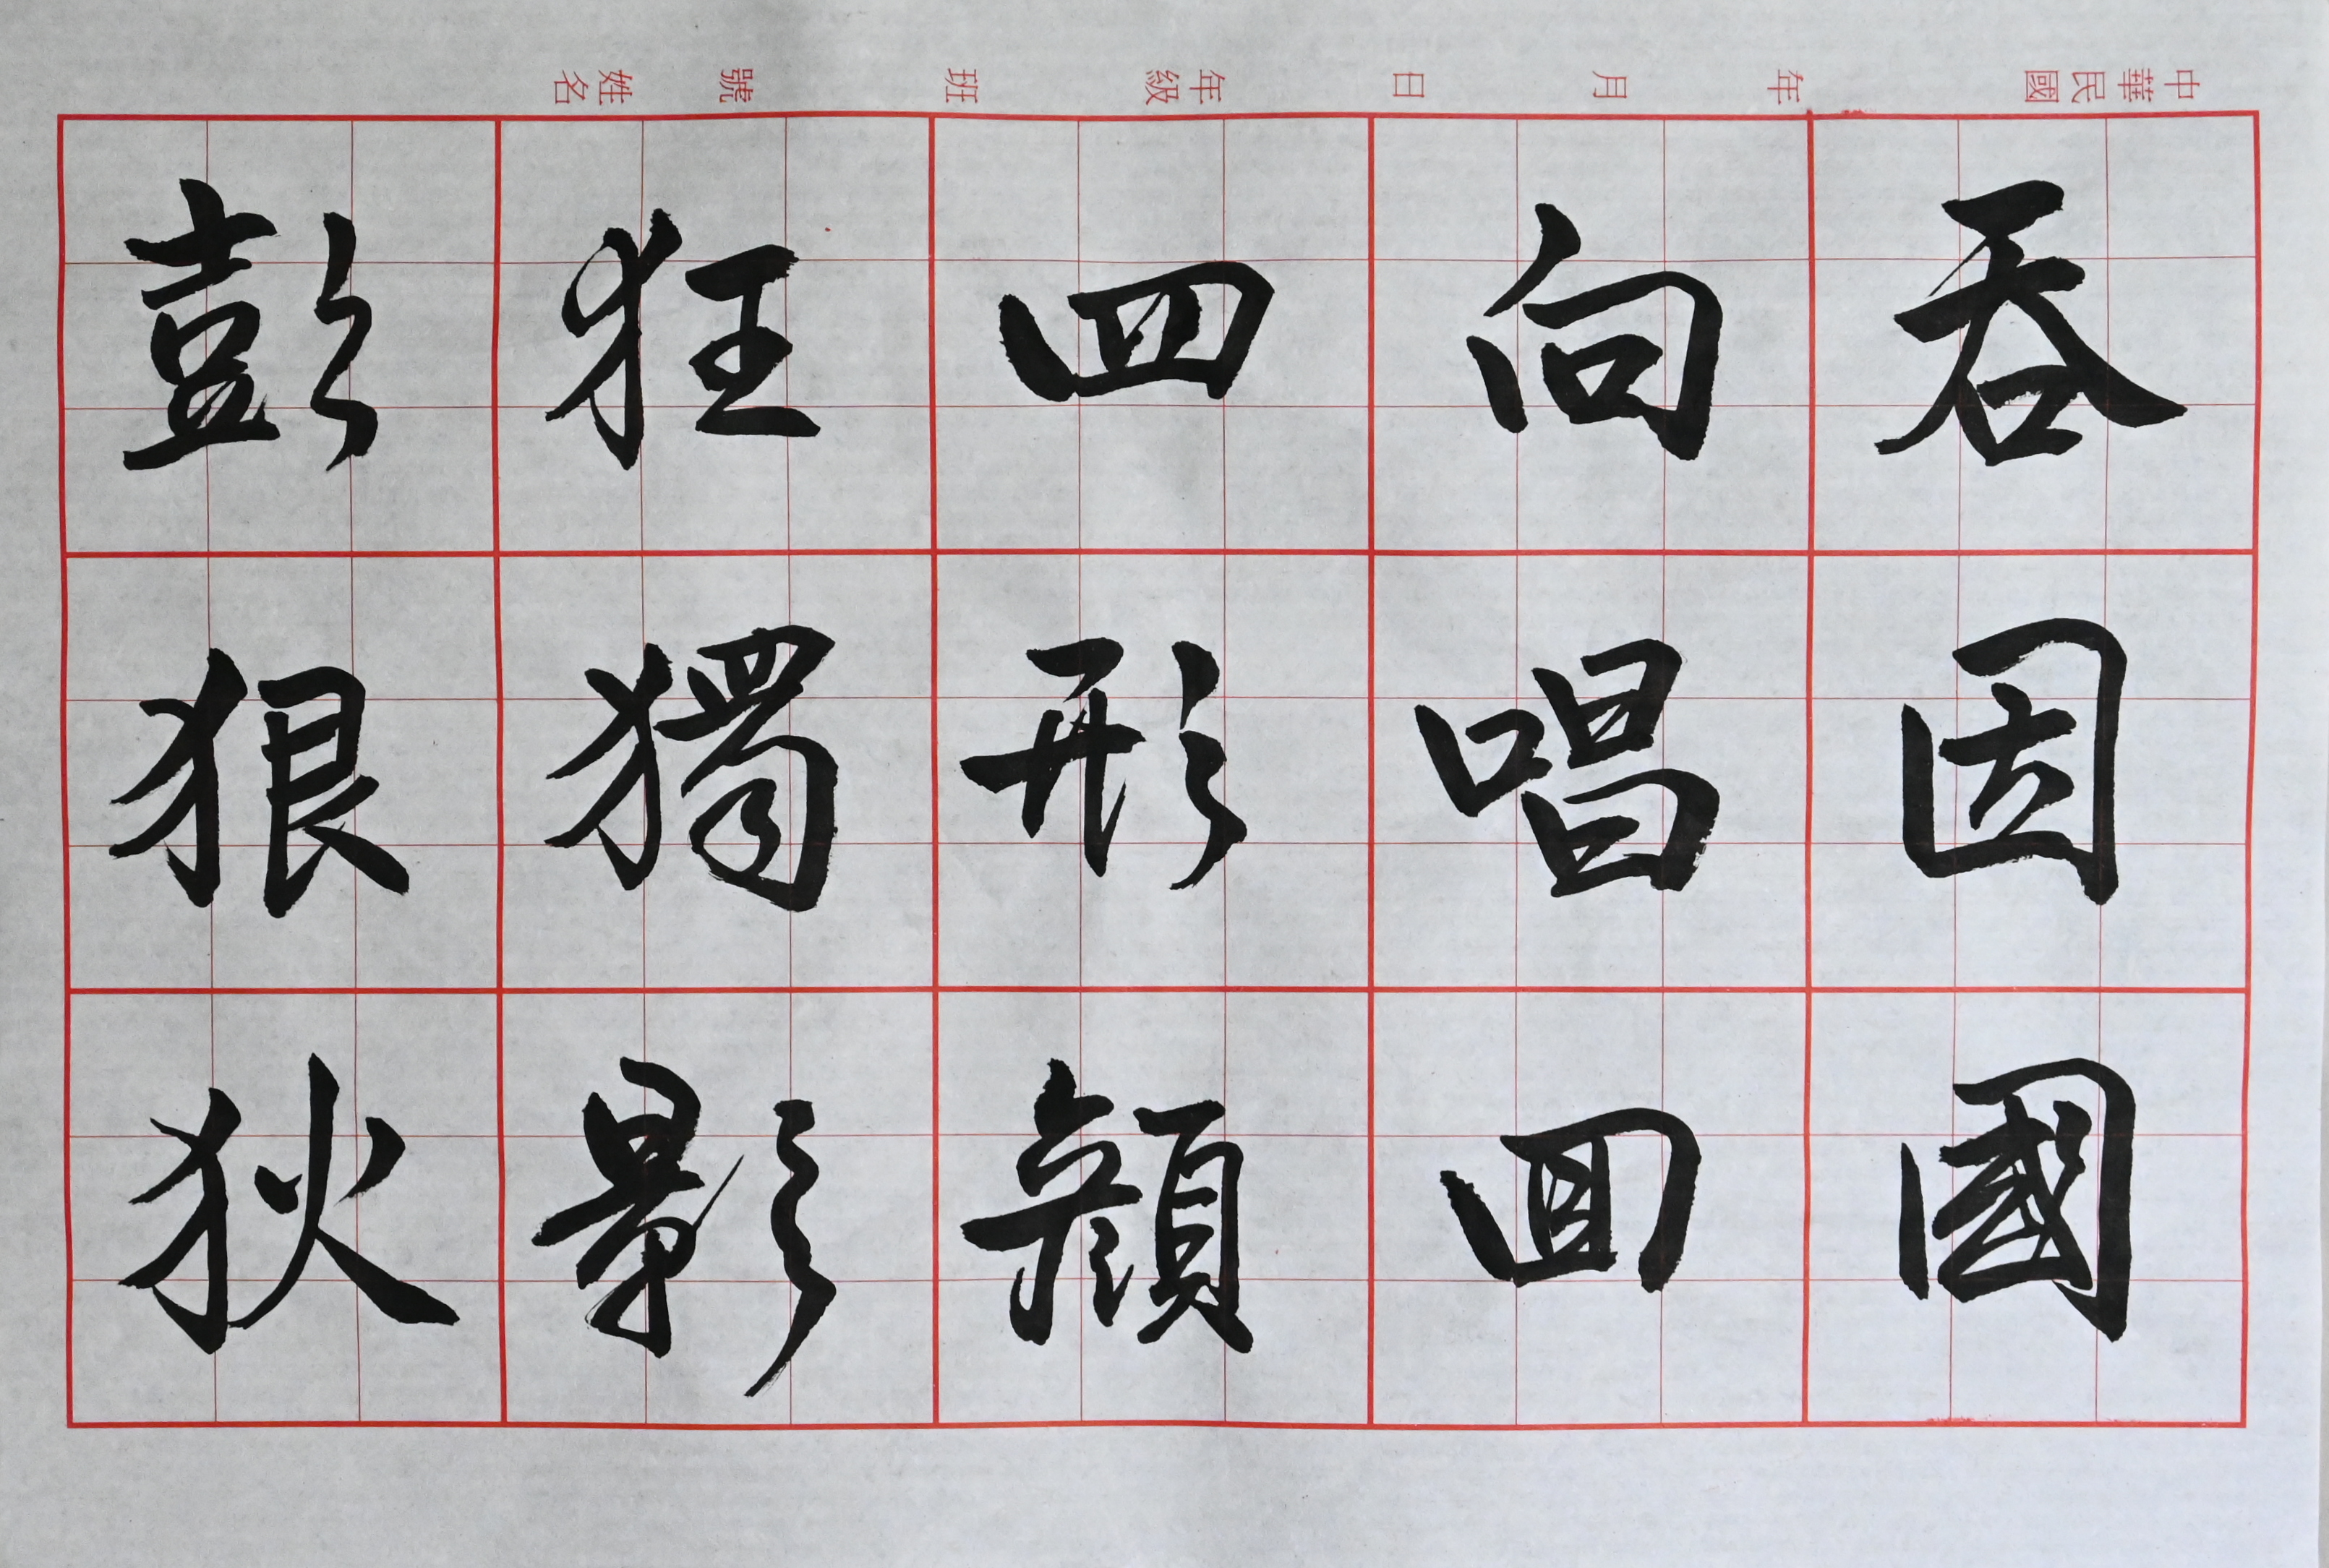 中華民國 年 月 日 年級 班 號 姓名
吞固國
向唱回
四形顏
狂獨影
彭狠狄